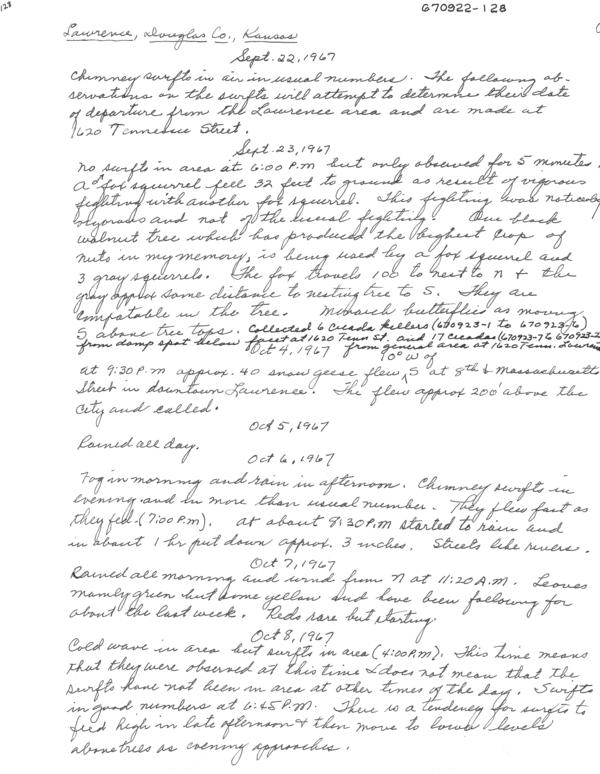 128
G70922-128
Lawrence, Douglas Co., Kansas
Sept. 22, 1967
Chimney swifts in air in usual numbers. The following ob-
servations on the swifts will attempt to determine their date
of departure from the Lawrence area and are made at
1620 Tennessee Street.
Sept. 23, 1967
No swifts in area at 6:00 P.M but only observed for 5 minutes.
A fox squirrel fell 32 feet to ground as result of vigorous
fighting with another fox squirrel. This fighting was noticeably
vigorous and not of the usual fighting. One black
walnut tree which has produced the highest crop of
nuts in my memory, is being used by a fox squirrel and
3 gray squirrels. The fox travels 100 to nest to N + the
gray approx same distance to nesting tree to S. They are
compatable in the tree. Monarch butterflies as moving
S above tree tops. Collected 6 Cicada killers (670923-1 to 670923-6)
from damp spot below facet at 1620 Tenn St. and 17 Cicadas (670923-7 to 670923-2
from general area at 1620 Tenn. Lawrence
Oct 4, 1967
10° W of
at 9:30 P.M approx. 40 snow geese flew S at 8th & Massachusetts
Street in downtown Lawrence. The flew approx 200' above the
city and called.
Oct 5, 1967
Rained all day.
Oct 6, 1967
Fog in morning and rain in afternoon. Chimney swifts in
evening and in more than usual number. They flew fast as
they fed (7:00 P.M). at about 9:30 P.M started to rain and
in about 1 hr put down approx. 3 inches. Streets like rivers.
Oct 7, 1967
Rained all morning and wind from N at 11:20 A.M. Leaves
mainly green but some yellow and have been following for
about the last week. Reds rare but starting.
Oct 8, 1967
Cold wave in area but swifts in area (4:00 P.M). This time means
that they were observed at this time & does not mean that the
swifts have not been in area at other times of the day. Swifts
in good numbers at 6:45 P.M. There is a tendency for swifts to
feed high in late afternoon + then move to lower levels
above trees as evening approaches.